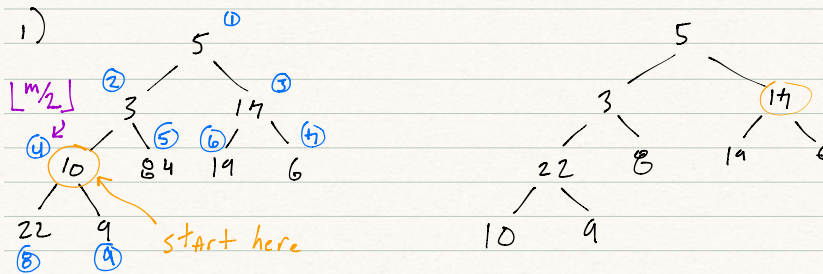 1)
5 ①
② 3 17 ③
⌊m/2⌋
④ 10 ⑤ 84 ⑥ 19 ⑦ 6
22 9
⑧ ⑨
start here
5
3 17
22 8 19
10 9